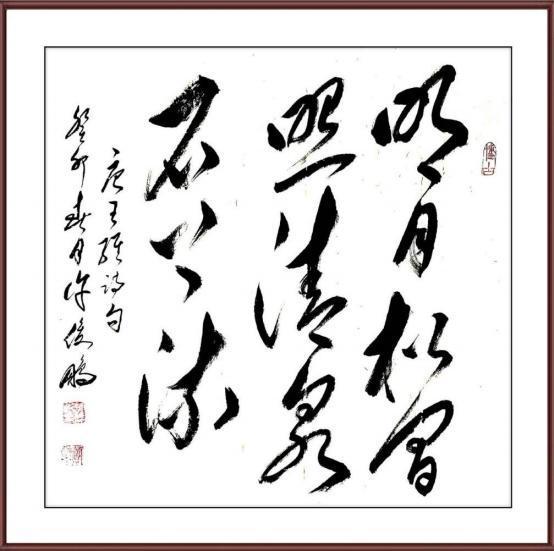 明月松间
照清泉
石上流
唐王维诗句
癸卯春月许俊鹏